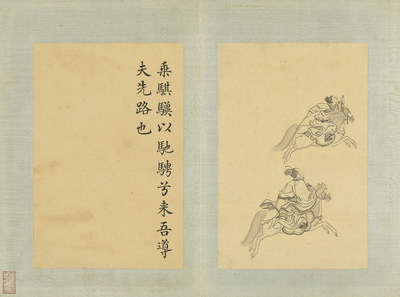 乘騏驥以馳騁兮来吾導
夫先路也